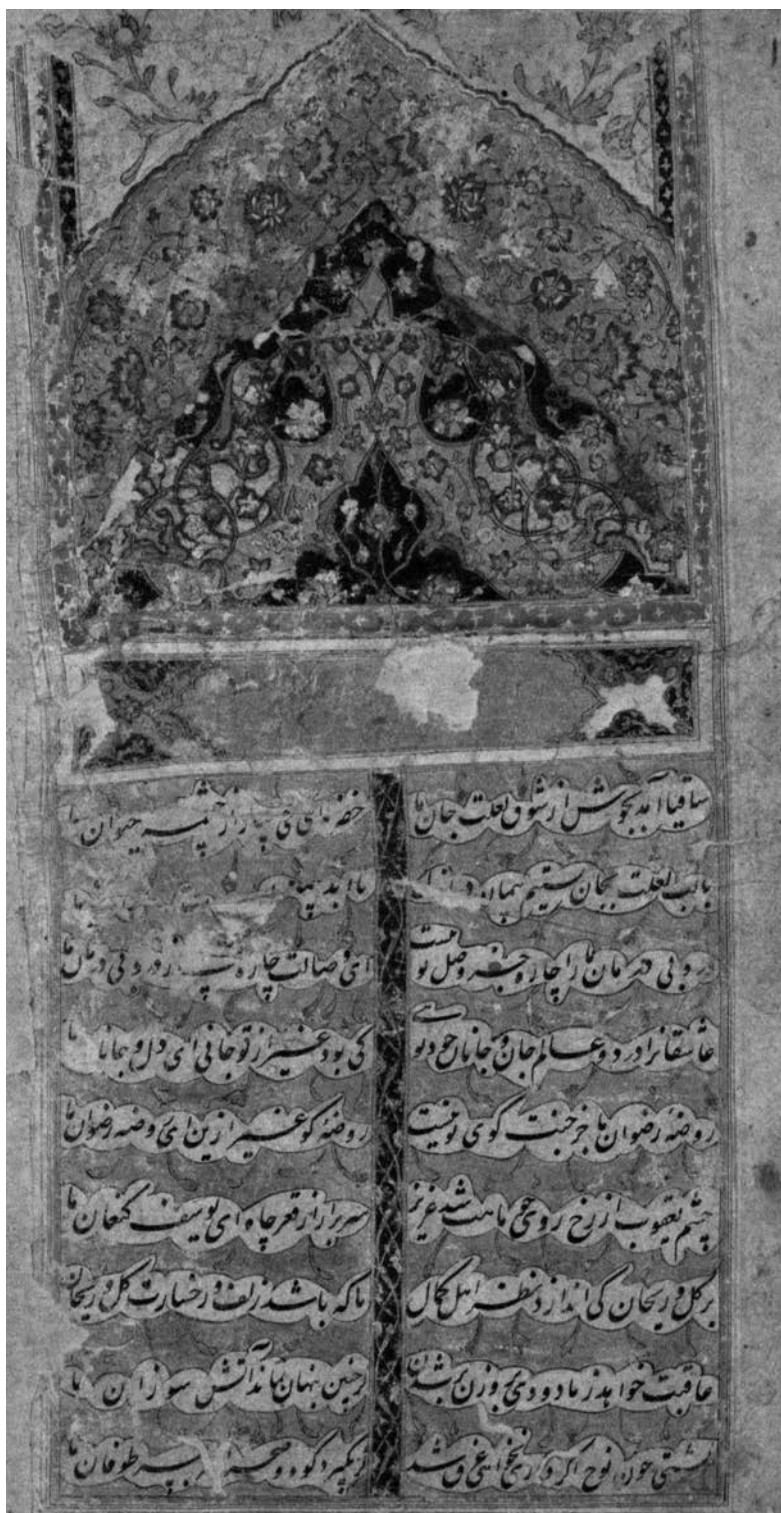 ساقیا آمد بجوش از شوق لعلت جان ما خضر مای می بیار از چشمه حیوان ما
با لب لعلت بجان بستیم پیمان در ازل تا ابد
درد بی درمان ما را چاره جز وصل تو نیست ای وصالت چاره درد بی درمان ما
عاشقانرا در دو عالم جان و جانان خود توی کی بود غیر از تو جانی ای دل و جانان ما
روضه رضوان ما جز جنت کوی تو نیست روضه کو غیر ازین ای روضه رضوان ما
چشم یعقوب از رخ شد عزیز سر برار از قعر چاه ای یوسف کنعان ما
بر کل و ریحان کی اندازد نظر اهل کمال تا که باشد زلف و رخسارت کل و ریحان
عاقبت خواهد ز ما دودی بروزن بر شدن کر چنین پنهان بماند آتش سوزان ما
کشتی چون نوح اکر داری نخواهی غرق شد کر بکیرد کوه و صحرا سر بسر طوفان ما